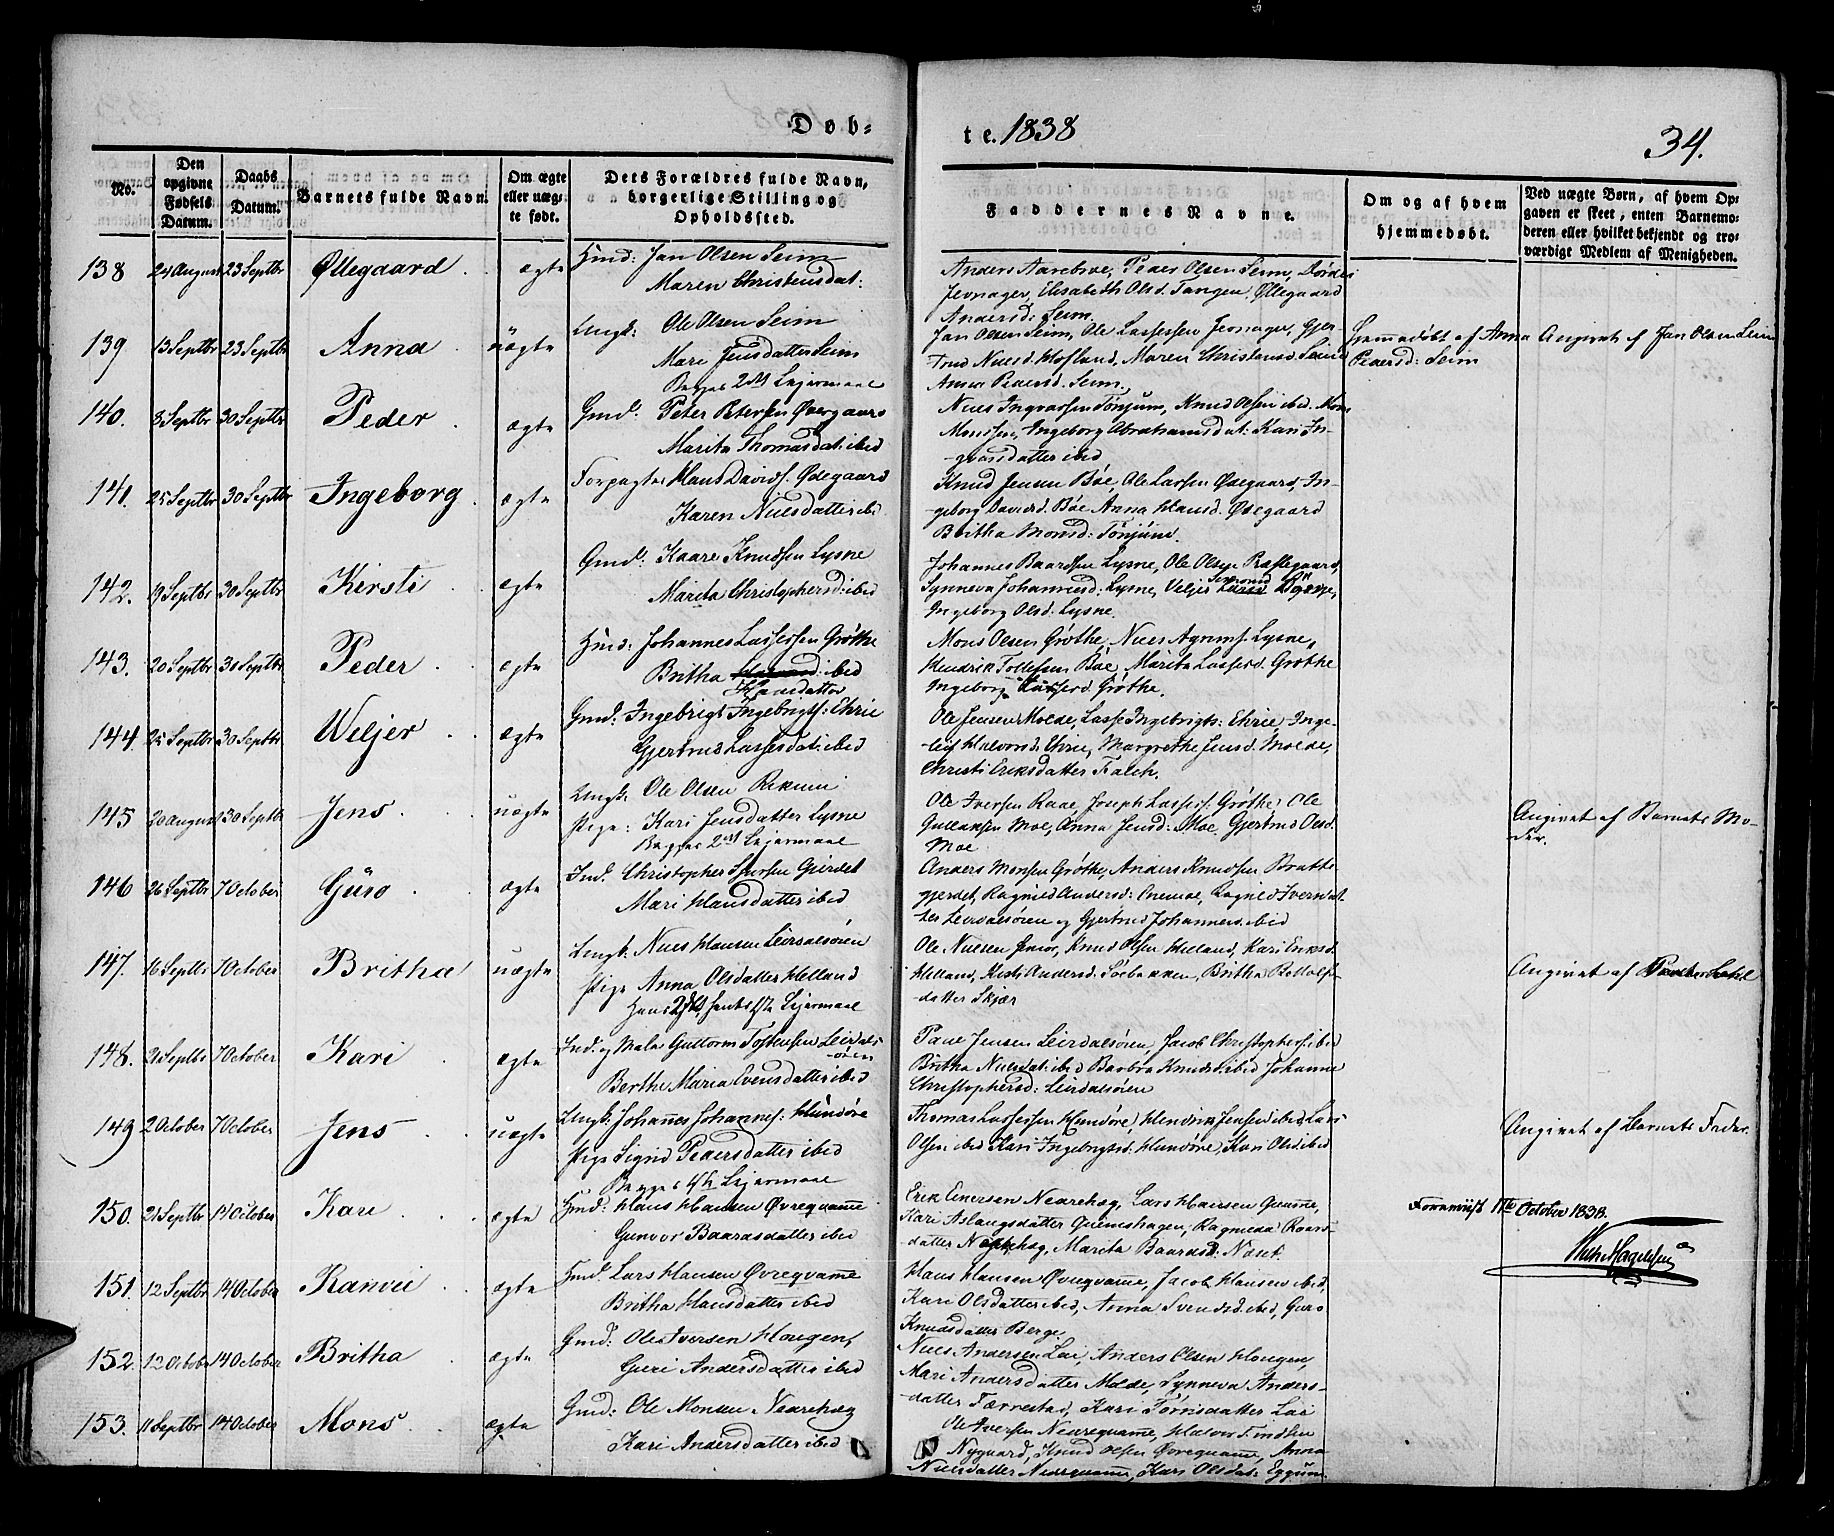 Døb-
te. 1838
34.
No.
Den opgivne Fødsels Datum.
Daabs Datum.
Barnets fulde Navn.
Om ægte eller uægte født.
Dets Forældres fulde Navn, borgerlige Stilling og Opholdssted.
Faddernes Navne.
Om og af hvem hjemmedøbt.
Ved uægte Børn, af hvem Opgaven er skeet, enten Barnemoderen eller hvilket bekjendt og troværdigt Medlem af Menigheden.
138 24 August 23 Septbr Øllegaard ægte Huusmd: Jan Olsen Seim
Maren Christensdat:
Anders Aarebroe, Peder Olsen Seim, Dordei
Jevnager, Elisabeth Olsd. Tangen, Øllegaard
Andersd: Seim
139 13 Septbr 23 Septbr Anna uægte Ungk: Ole Olsen Seim
Mari Jensdatter Seim
Begges 2det Lejermaal
Jan Olsen Seim, Ole Lassessen Jevnager, Gjer-
trud Nielsd. Hofland, Maren Christensd. Seim
Anna Pedersd. Seim.
Hjemmedøbt af Anna
Pedersd: Seim
Angivet af Jan Olsen Seim
140. 8 Septbr 30 Septbr Peder ægte Gmd: Peter Petersen Øvregaard
Marita Thomasdat: ibid
Niels Ingvarssen Tønjum, Knud Olsen ibid. Mons
Monssen, Ingeborg Abrahamsdat: Kari In-
-gvarsdatter ibid
141. 25 Septbr 30 Septbr Ingeborg ægte Forpagter Hans Davids. Ødegaard
Karen Nielsdatter ibid
Knud Jensen Bøe, Ole Larsen Ødegaard, In-
geborg Davidsd. Bøe Anna Hansd. Ødegaard
Britha Monsd: Tønjum.
142. 19 Septbr 30 Septbr Kirsti ægte Gmd: Kaare Knudsen Lysne
Marita Christophersd: ibid
Johannes Baardsen Lysne, Ole Olsen Præstegaard,
Synneva Johannesd: Lysne, Veljer
Ingeborg Olsd. Lysne.
143. 20 Septbr 30 Septbr Peder ægte Huusmd: Johannes Lassessen Grøthe
Britha ibid
Hansdatter
Mons Olsen Grøthe, Niels Lysne,
Hendrik Tollefsen Bøe, Marita Lassesd. Grøthe
Ingeborg Grøthe.
144. 25 Septbr 30 Septbr Weljer ægte Gmd: Ingebrigt Ingebrigts: Ehrie
Gjertrud Lassesdat: ibid
Ole Jensen Molde, Lasse Ingebrigts: Ehrie, Inge-
-leif Halvorsd. Ehrie, Margrethe Jensd. Molde,
Christi Eriksdatter Falch.
145 20 August 30 Septbr Jens uægte Ungk: Ole Olsen
Pige: Kari Jensdatter Lysne
Begges 2det Lejermaal
Ole Iversen Raae, Joseph Lasses. Grøthe, Ole
Gullaksen Moe, Anna Jensd: Moe, Gjertrud Olsd.
Moe
Angivet af Barnets Mo-
der.
146 26 Septbr 7 October Guro ægte Ind. Christopher Gjerdet
Mari Hansdatter ibid
Anders Monsen Grøthe, Anders Knudsen Bratte-
gjerdet, Ragnild Andersd: Ragnild Iversdat-
ter Leirdalsøren og Gjertrud Johannesd: ibid
147. 16 Septbr 7 October Britha uægte Ungk: Niels Hansen Leirdalsøren
Pige Anna Olsdatter Helland
Hans 2det, hendes 1ste Lejermaal
Ole Nielsen Øvrior, Knud Olsen Helland, Kari Eriksd.
Helland, Kirsti Andersd: Sorbakken, Britha Botolfs-
-datter Skjær
Angivet af
148. 21 Septbr 7 October Kari ægte Ind. og Maler Guttorm Tostensen Leirdals-
-øren
Berthe Maria Evensdatter ibid
Paul Jensen Leirdalsøren, Jacob Christophers: ibid
Britha Nielsdat: ibid Barbra Knudsd: ibid Johanne
Christophersd: Leirdalsøren
149 2 October 7 October Jens uægte Ungk: Johannes Johannes: Hundøre
Pige Sigrid Pedersdatter ibid
Begges 1ste Lejermaal
Thomas Lassessen Hundøre, Hendrik Jensen ibid, Lars
Olsen ibid Kari Ingebrigtsd: Hundøre, Kari Olsd: ibid
Angivet af Barnets Fader.
150. 21 Septbr 14 October Kari ægte Gmd: Hans Hansen Øvrequamme
Gunvor Baardsdatter ibid
Erik Einersen Nedrehæg, Lars Hansen Quamme,
Kari Aslaugsdatter Quamshagen, Ragnilda Roars-
-datter Nedrehæg, Marita Baardsd: Næset.
Foreviist 17de October 1838.
151. 12 Septbr 14 October Ranvei ægte Gmd. Lars Hansen Øvrequamme
Britha Hansdatter ibid
Hans Hansen Øvrequamme, Jacob Hansen ibid,
Kari Olsdatter ibid, Anna Svendsd. ibid, Guro
Knudsdatter Berge
152. 12 October 14 October Britha ægte Gmd: Ole Iversen Hougen,
Guri Andersdatter ibid
Niels Andersen Loe, Anders Olsen Hougen,
Mari Andersdatter Molde, Synneva Anders-
-datter Færrestad, Kari Tørrisdatter Loe
153. 11 Septbr 14 October Mons ægte Gmd: Ole Monsen Nedrehæg
Kari Andersdatter ibid
Ole Iversen Nedrequamme, Halvor Findsen
Nygaard, Knud Olsen Øvrequam, Anna
Nielsdatter Nedrequamme, Kari Olsdat: Eggum